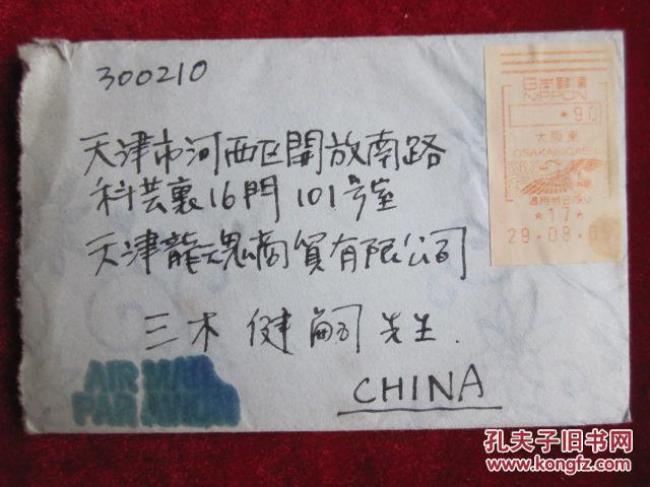 300210
天津市河西区開放南路
科芸裏16門101号室
天津龍魂商貿有限公司
三木 健嗣 先生.
CHINA
AIR MAIL
PAR AVION
日本郵便
NIPPON
大阪東
OSAKAHIGASHI
*17*
孔夫子旧书网
www.kongfz.com